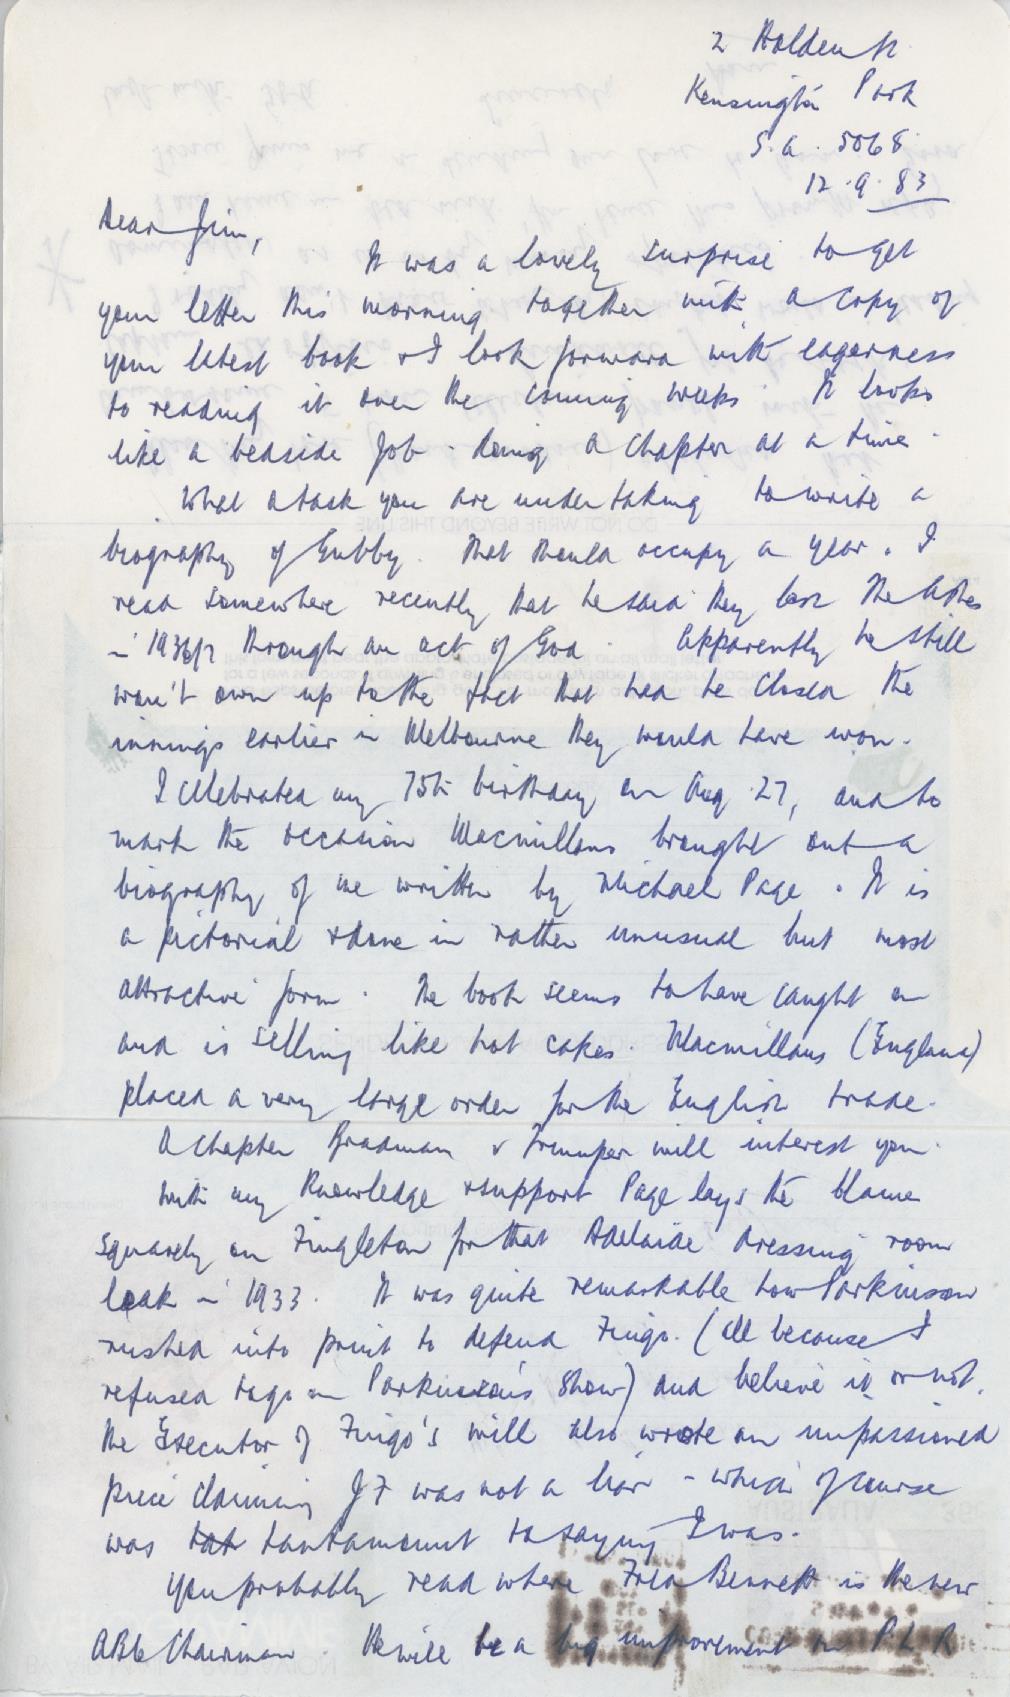 2 Holden St
Kensington Park
S.A. 5068
12.9.83
Dear Jim,
It was a lovely surprise to get
your letter this morning together with a copy of
your latest book & I look forward with eagerness
to reading it over the coming weeks. It looks
like a bedside job - doing a chapter at a time.
What a task you are undertaking to write a
biography of Gubby. That should occupy a year. I
read somewhere recently that he said they lost the Ashes
in 1936/7 through an act of God. Apparently he still
won't own up to the fact that had he closed the
innings earlier in Melbourne they would have won.
I celebrated my 75th birthday on Aug 27, and to
mark the occasion Macmillans brought out a
biography of me written by Michael Page. It is
a pictorial & done in rather unusual but most
attractive form. The book seems to have caught on
and is selling like hot cakes. Macmillans (England)
placed a very large order for the English trade.
A chapter Bradman v Trumper will interest you.
With my knowledge & support Page lays the blame
squarely on Fingleton for that Adelaide dressing room
leak in 1933. It was quite remarkable how Parkinson
rushed into print to defend Fingo. (All because I
refused to go on Parkinson's show) and believe it or not,
the Executor of Fingo's will also wrote an impassioned
piece claiming JF was not a liar - which of course
was tantamount to saying I was.
You probably read where Fred Bennett is the new
ABC Chairman. He will be a big improvement on P.L.R
DO NOT WRITE BEYOND THIS LINE
AUSTRALIA